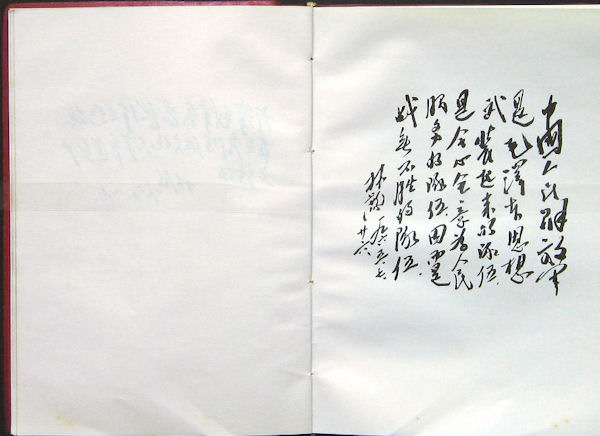 中國人民解放军
是毛澤东思想
武裝起来的隊伍,
是全心全意为人民
服务的隊伍,因而是
战无不胜的隊伍。
林彪 一九六五、七、
廿六